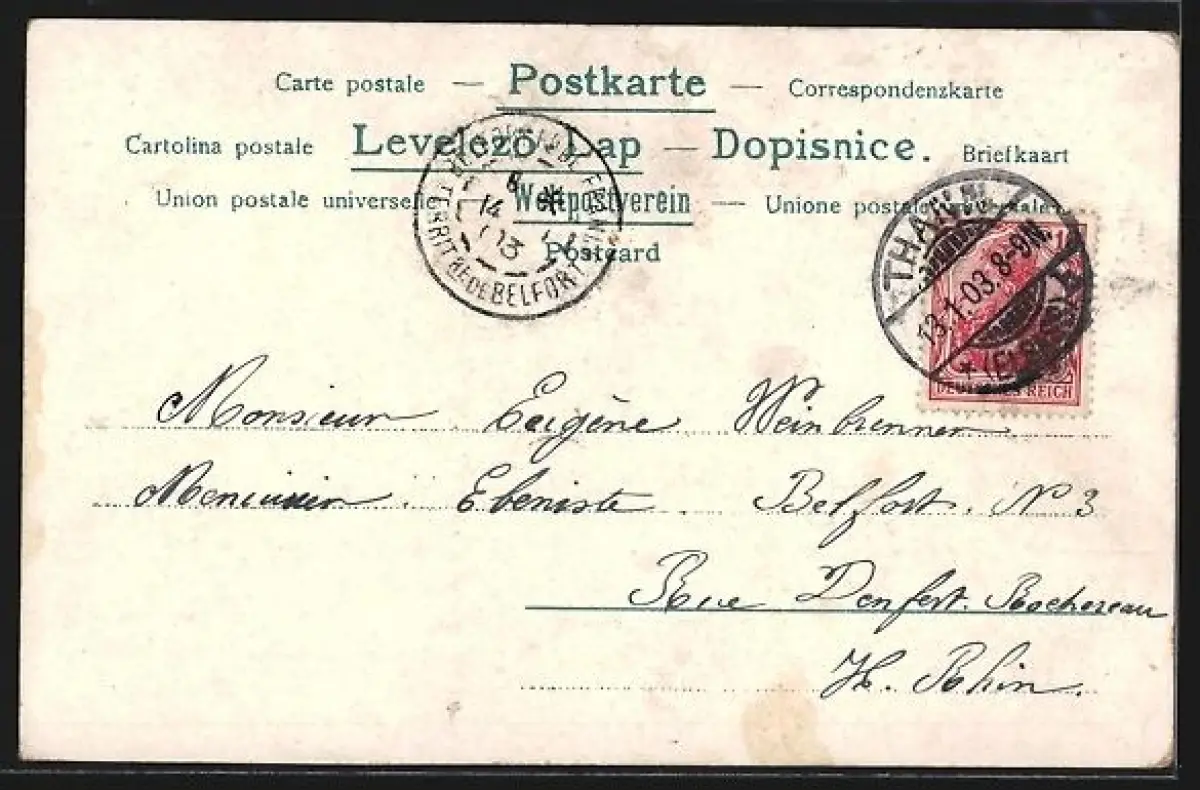 Carte postale — Postkarte — Correspondenzkarte
Cartolina postale Levelező Lap — Dopisnice. Briefkaart
Union postale universelle — Weltpostverein — Unione postale universale
Postcard
8
14
03
TERRIT RE DE BELFORT
THANN
13.1.03. 8-9N.
* (ELSASS)
DEUTSCHES REICH
Monsieur Eugène Weinbrenner
Menuisier Ebeniste. Belfort. N 3
Rue Denfert. Rochereau
H. Rhin.